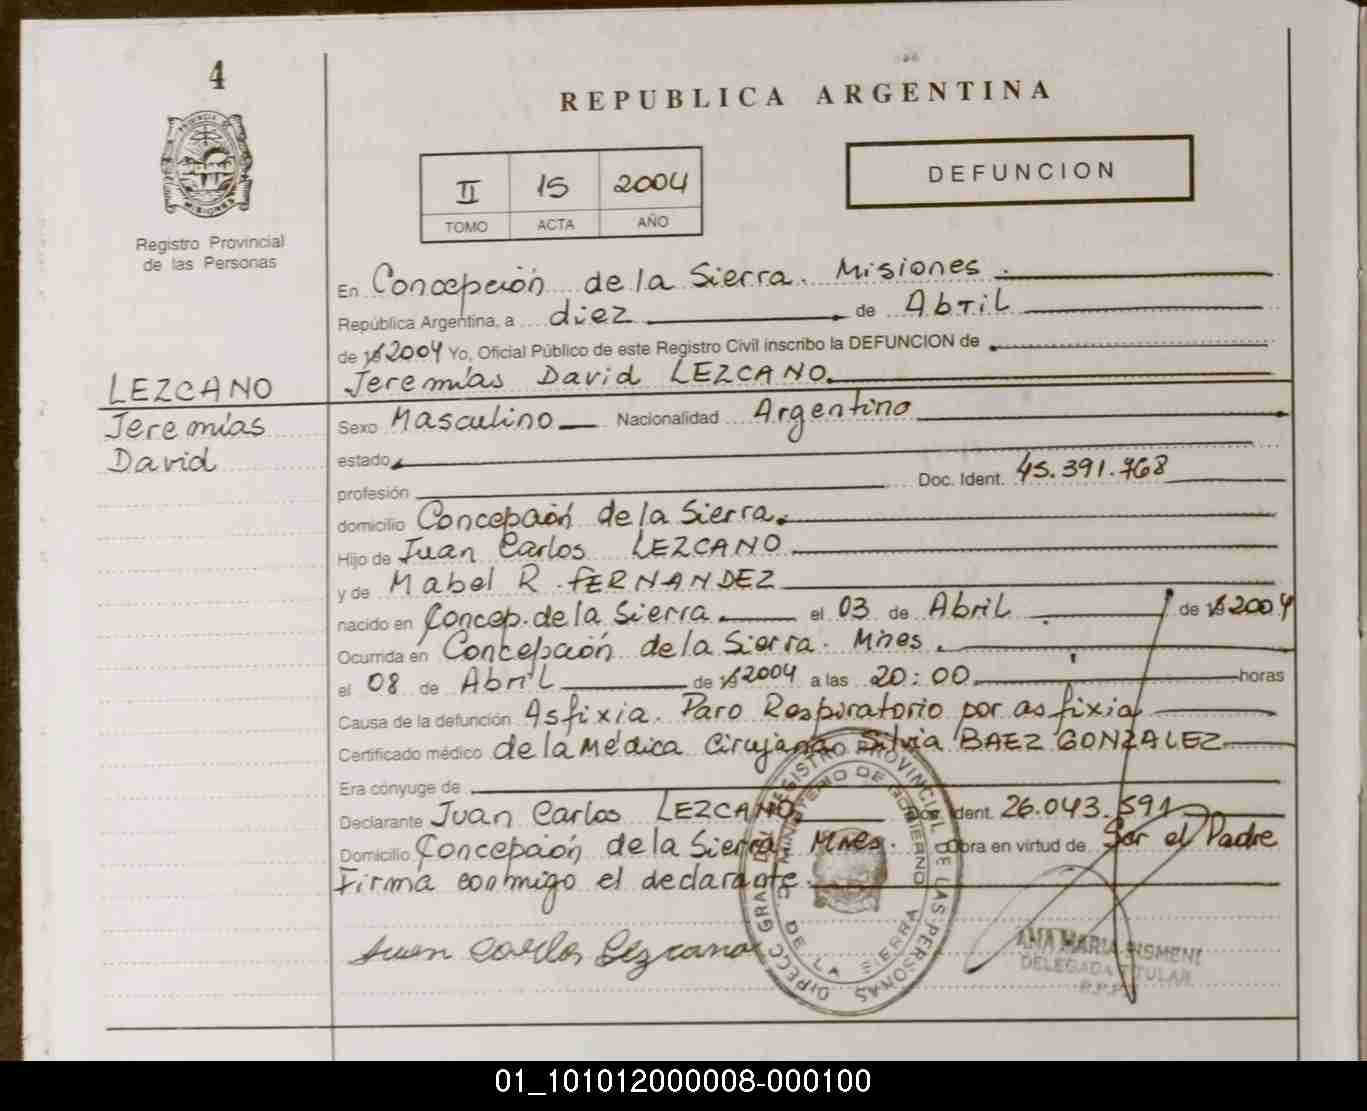 4
REPUBLICA ARGENTINA
PROVINCIA DE
MISIONES
Registro Provincial
de las Personas
II 15 2004
TOMO ACTA AÑO
DEFUNCION
En Concepción de la Sierra. Misiones.
República Argentina, a diez de Abril
de 2004 Yo, Oficial Público de este Registro Civil inscribo la DEFUNCION de
LEZCANO
Jeremías David LEZCANO
Jeremías
David
Sexo Masculino Nacionalidad Argentino
estado
profesión Doc. Ident. 45.391.768
domicilio Concepción de la Sierra.
Hijo de Juan Carlos LEZCANO
y de Mabel R. FERNANDEZ
nacido en Concep. de la Sierra el 03 de Abril de 2004
Ocurrida en Concepción de la Sierra. Mnes.
el 08 de Abril de 2004 a las 20:00 horas
Causa de la defunción Asfixia. Paro Respiratorio por asfixia
Certificado médico de la Médica Cirujano Silvia BAEZ GONZALEZ
Era cónyuge de
Declarante Juan Carlos LEZCANO Doc. Ident. 26.043.591
Domicilio Concepción de la Sierra Mnes. Obra en virtud de Ser el Padre
Firma conmigo el declarante
Juan Carlos Lezcano
DIRECC GRAL DE REGISTRO PROVINCIAL DE LAS PERSONAS
MINISTERIO DE GOBIERNO
DE LA SIERRA
ANA MARIA PISMENI
DELEGADA TITULAR
R.P.P.
01_101012000008-000100